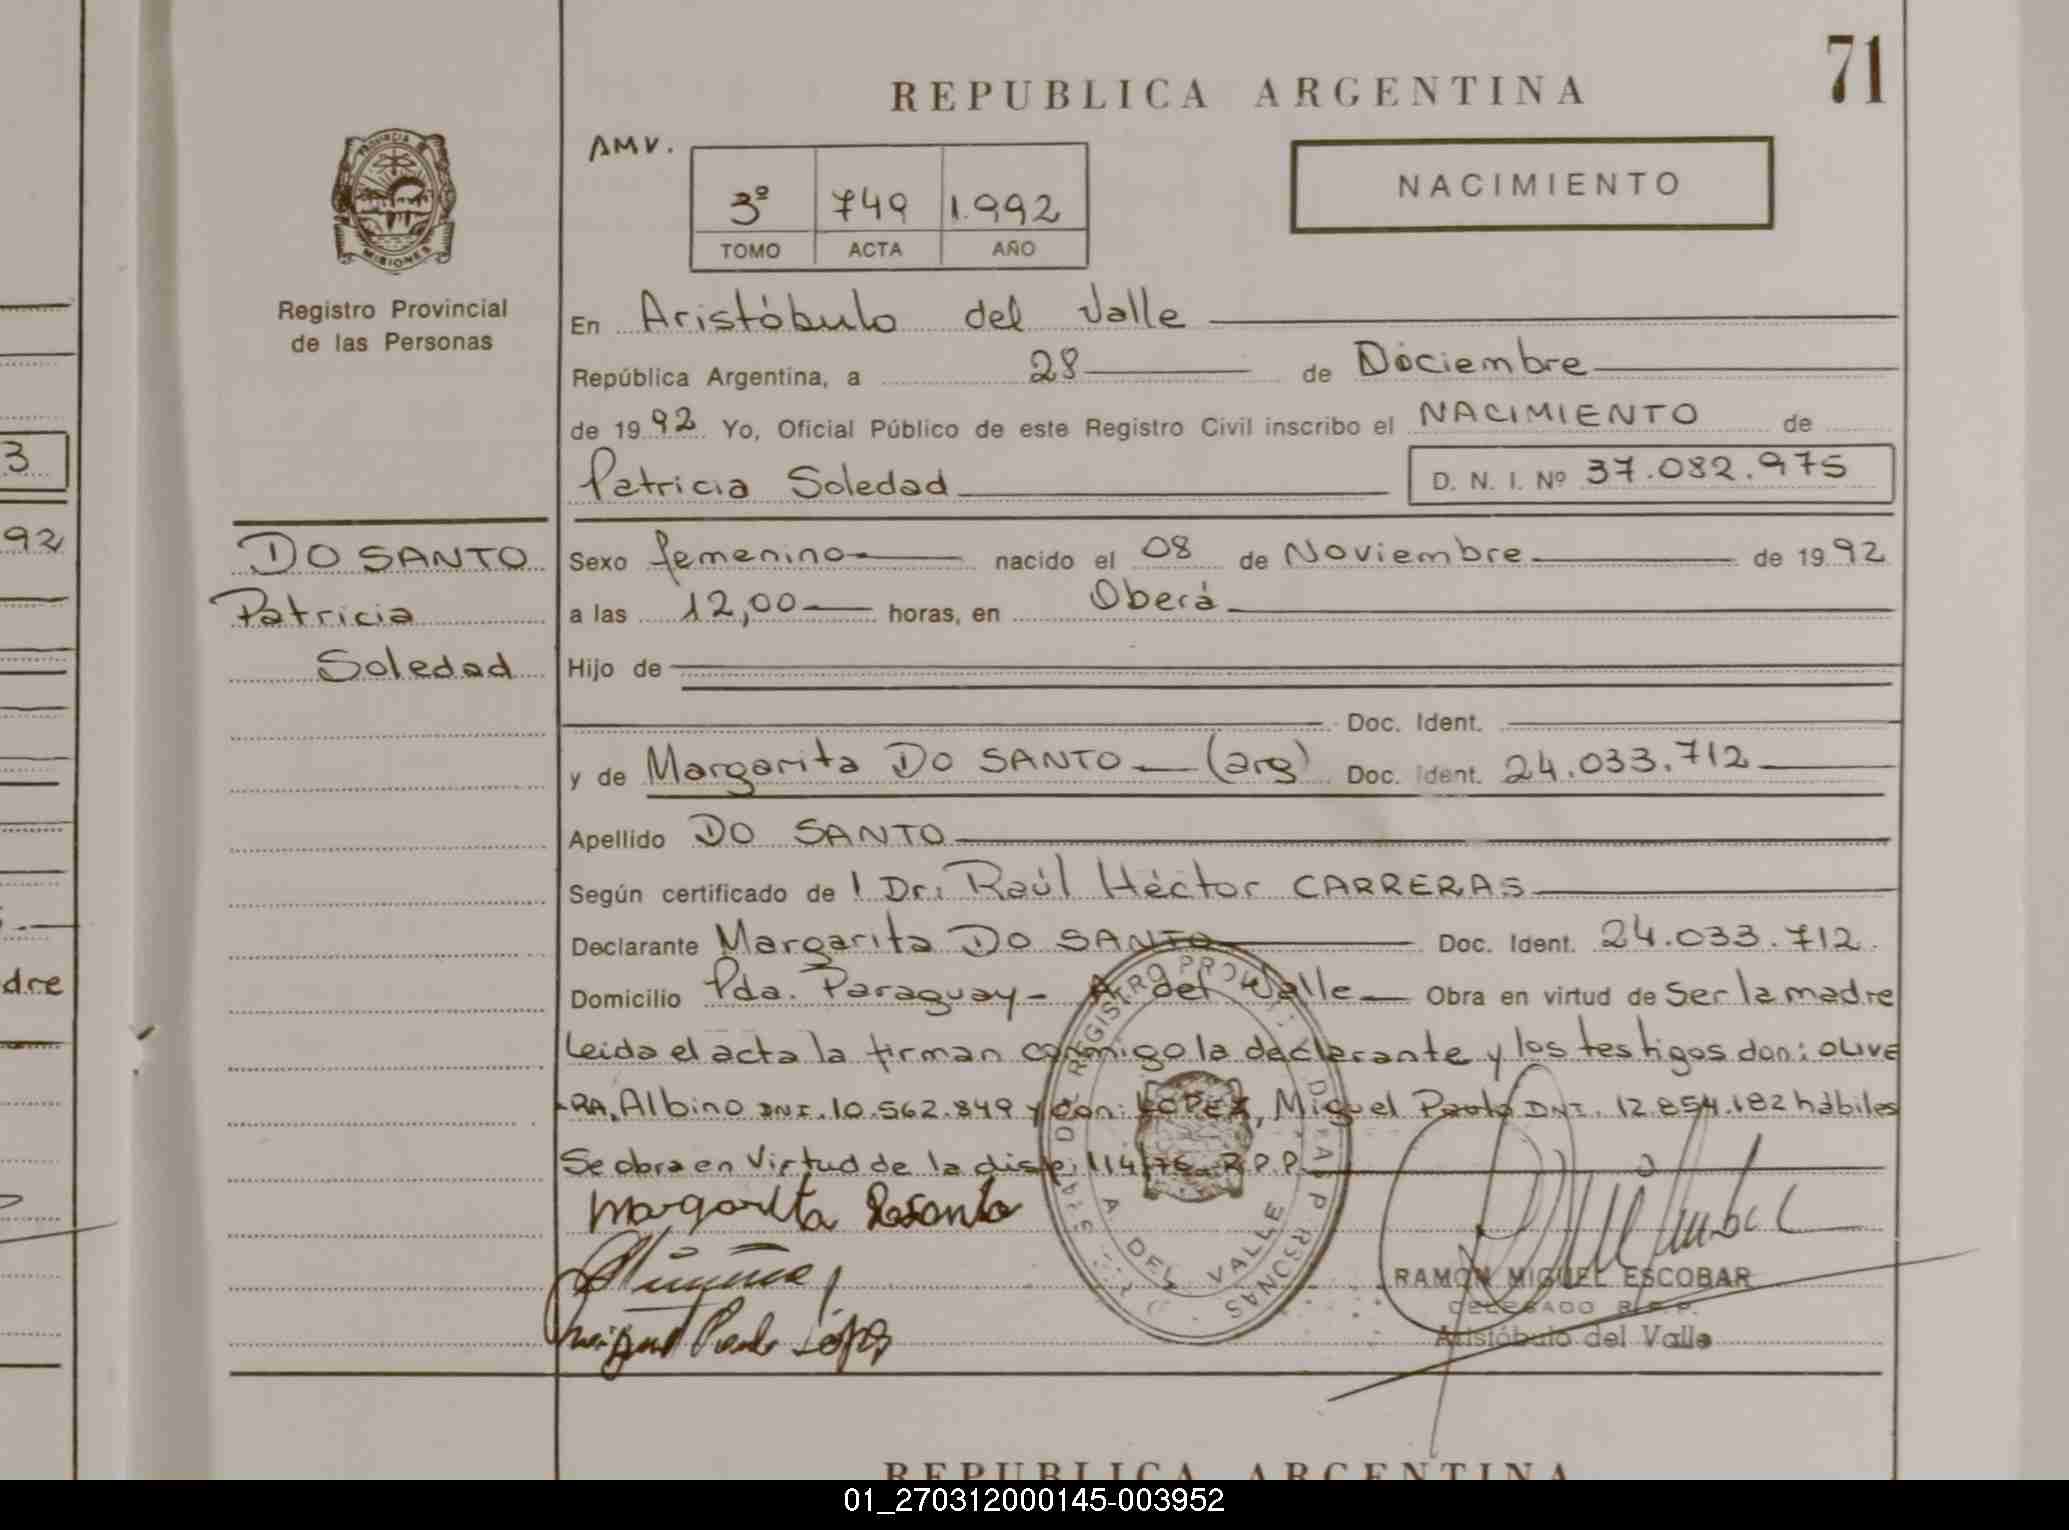 REPUBLICA ARGENTINA
71
PROVINCIA DE
MISIONES
Registro Provincial
de las Personas
AMV.
3º 749 1.992
TOMO ACTA AÑO
NACIMIENTO
En Aristóbulo del Valle
República Argentina, a 28 de Diciembre
de 1992 Yo, Oficial Público de este Registro Civil inscribo el NACIMIENTO de
Patricia Soledad D. N. I. Nº 37.082.975
DO SANTO
Patricia
Soledad
Sexo femenino nacido el 08 de Noviembre de 1992
a las 12,00 horas, en Oberá
Hijo de
Doc. Ident.
y de Margarita DO SANTO (arg) Doc. Ident. 24.033.712
Apellido DO SANTO
Según certificado de Dr: Raúl Héctor CARRERAS
Declarante Margarita DO SANTO Doc. Ident. 24.033.712
Domicilio Pda. Paraguay - A. del Valle Obra en virtud de Ser la madre
Leida el acta la firman conmigo la declarante y los testigos don: OLIVE
-RA, Albino DNI. 10.562.849 y don: LOPEZ, Miguel Paulo DNI. 12.854.182 hábiles
Se obra en virtud de la disp. 114/76 R.P.P.
Margarita Dosanto
Miguel Paulo López
A. DEL VALLE
RAMON MIGUEL ESCOBAR
DELEGADO R.P.P.
Aristóbulo del Valle
3
92
dre
REPUBLICA ARGENTINA
01_270312000145-003952